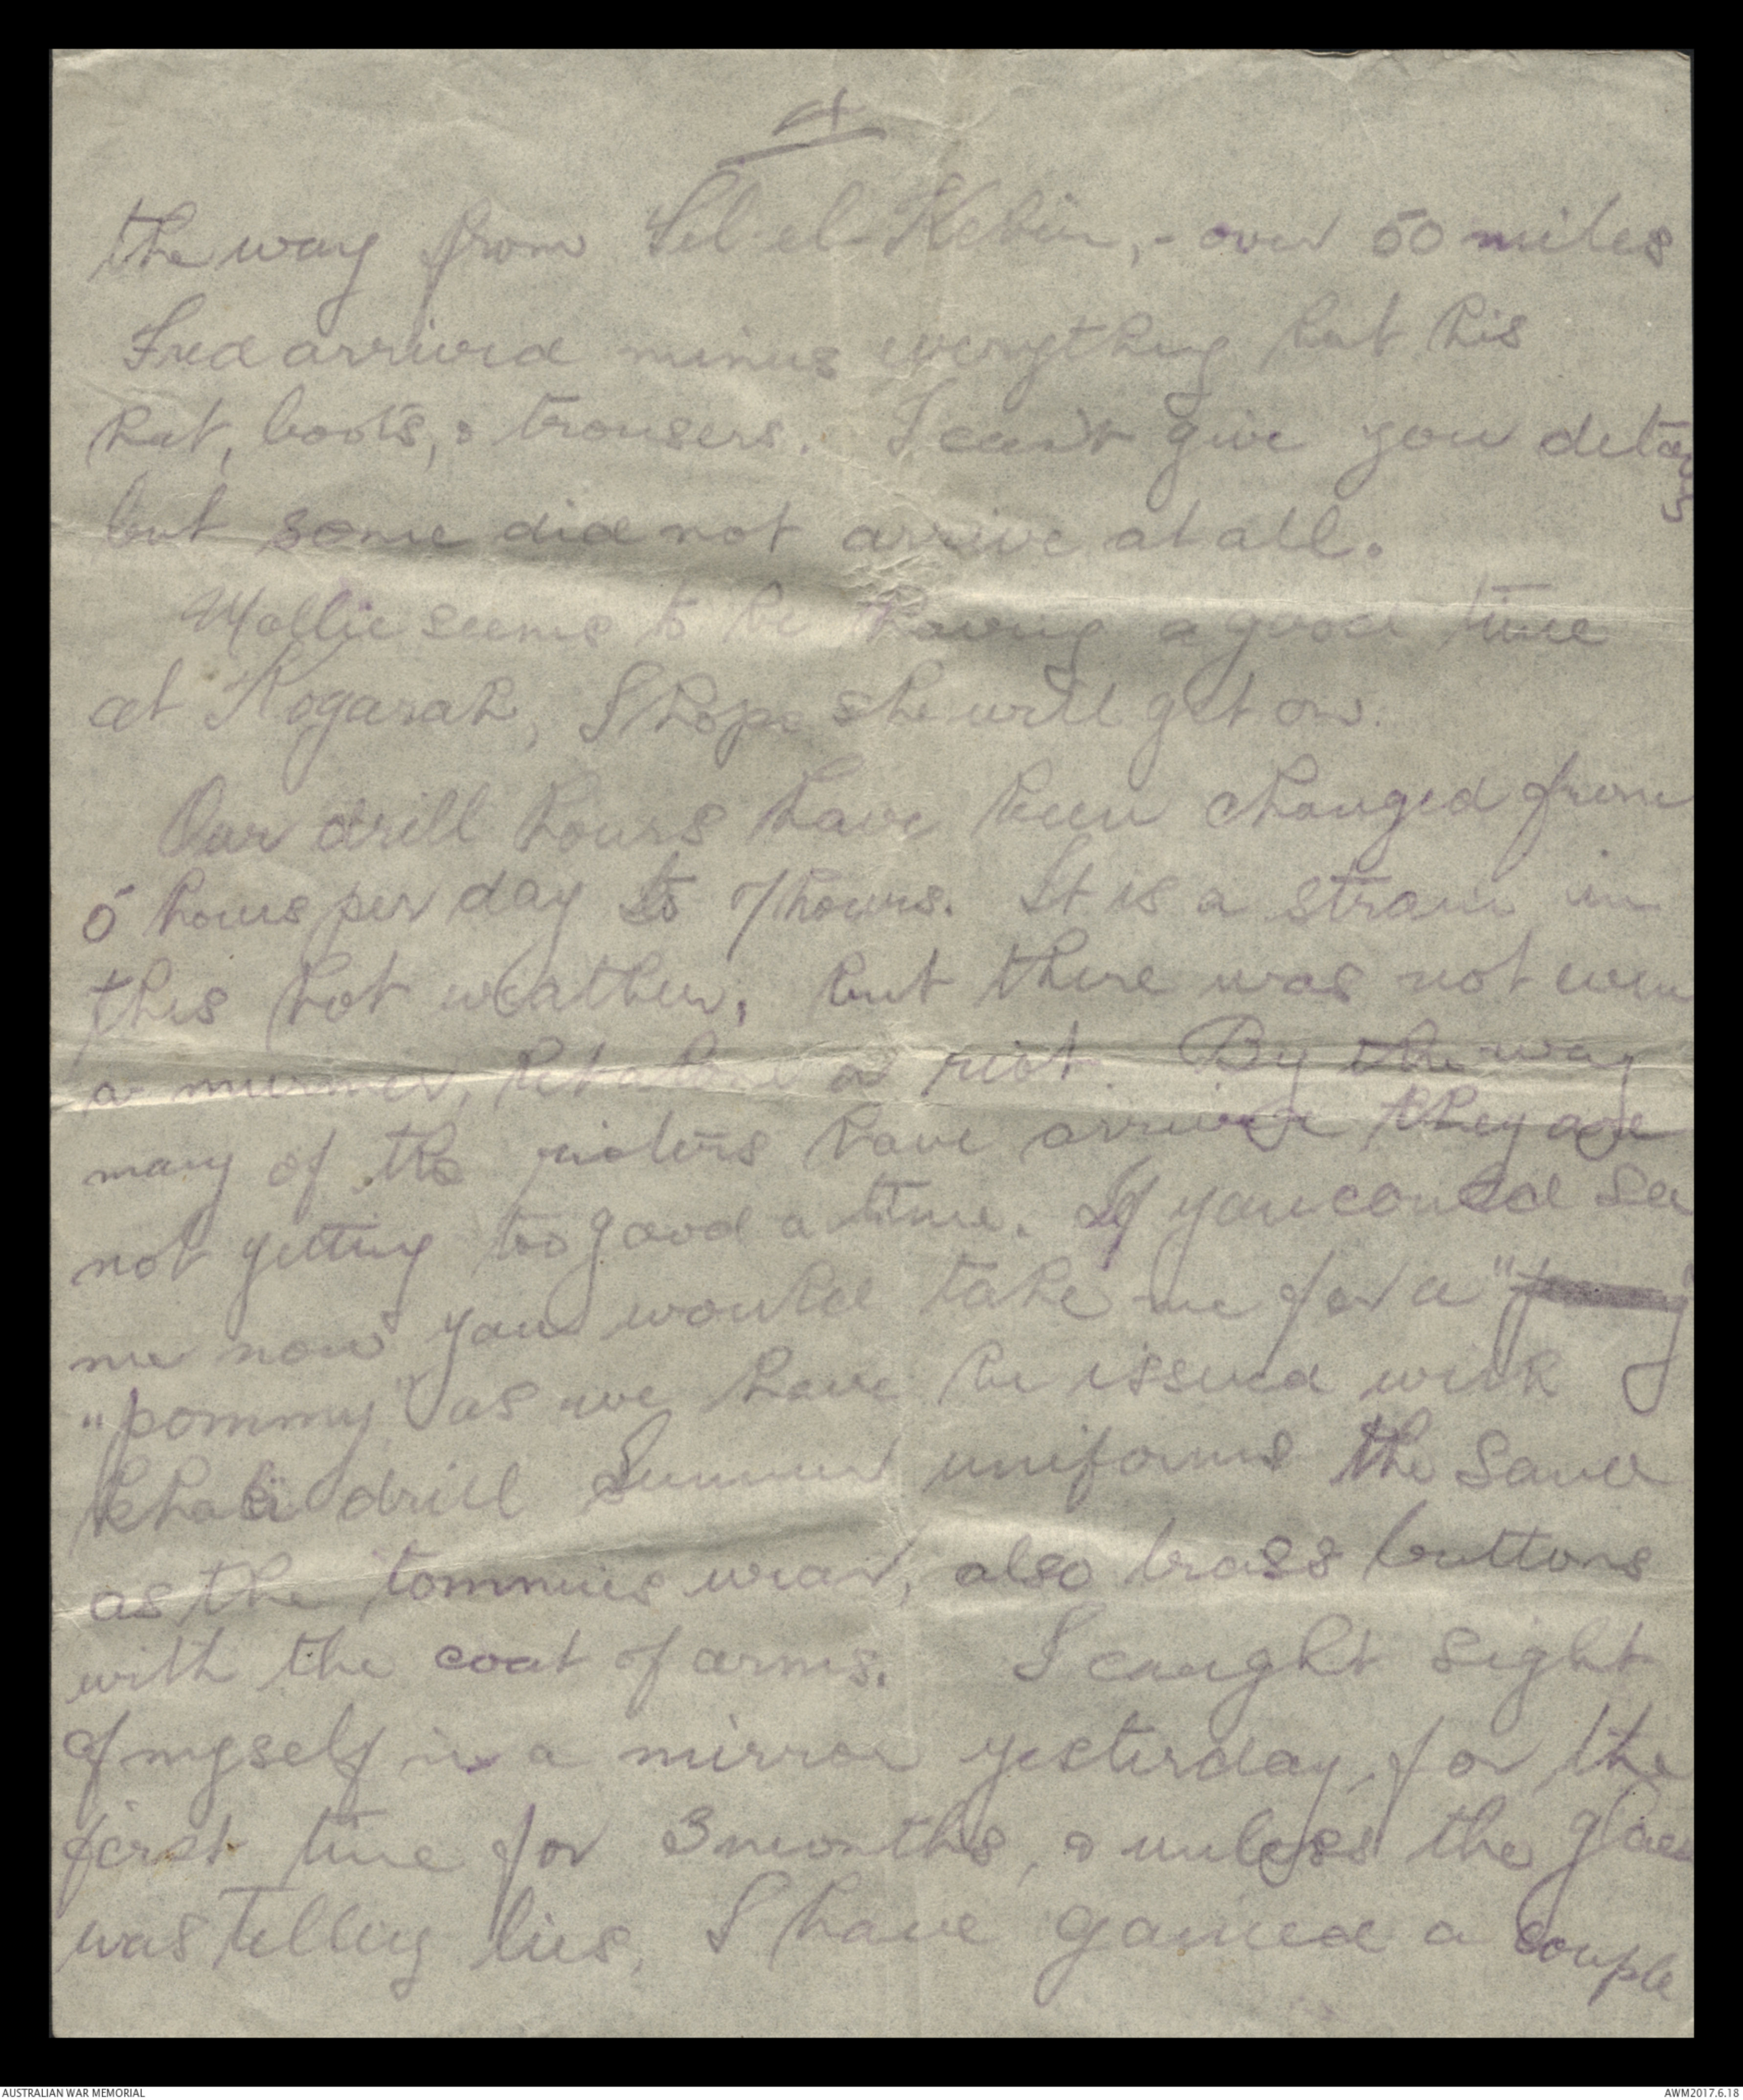 4
the way from Tel-el-Kebir, - over 50 miles
Fred arrived minus everything but his
hat, boots, & trousers. I can't give you details
but some did not arrive at all.
Mollie seems to be having a good time
at Kogarah, I hope she will get on.
Our drill hours have been changed from
5 hours per day to 7 hours. It is a strain in
this hot weather, but there was not even
a murmer, let alone a riot. By the way
many of the rioters have arrived they are
not getting too good a time. If you could see
me now you would take me for a "
"pommy" as we have be issued with
khaki drill summer uniforms the same
as the tommies wear, also brass buttons
with the coat of arms. I caught sight
of myself in a mirror yesterday, for the
first time for 3 months, & unless the glass
was telling lies, I have gained a couple
AUSTRALIAN WAR MEMORIAL
AWM2017.6.18